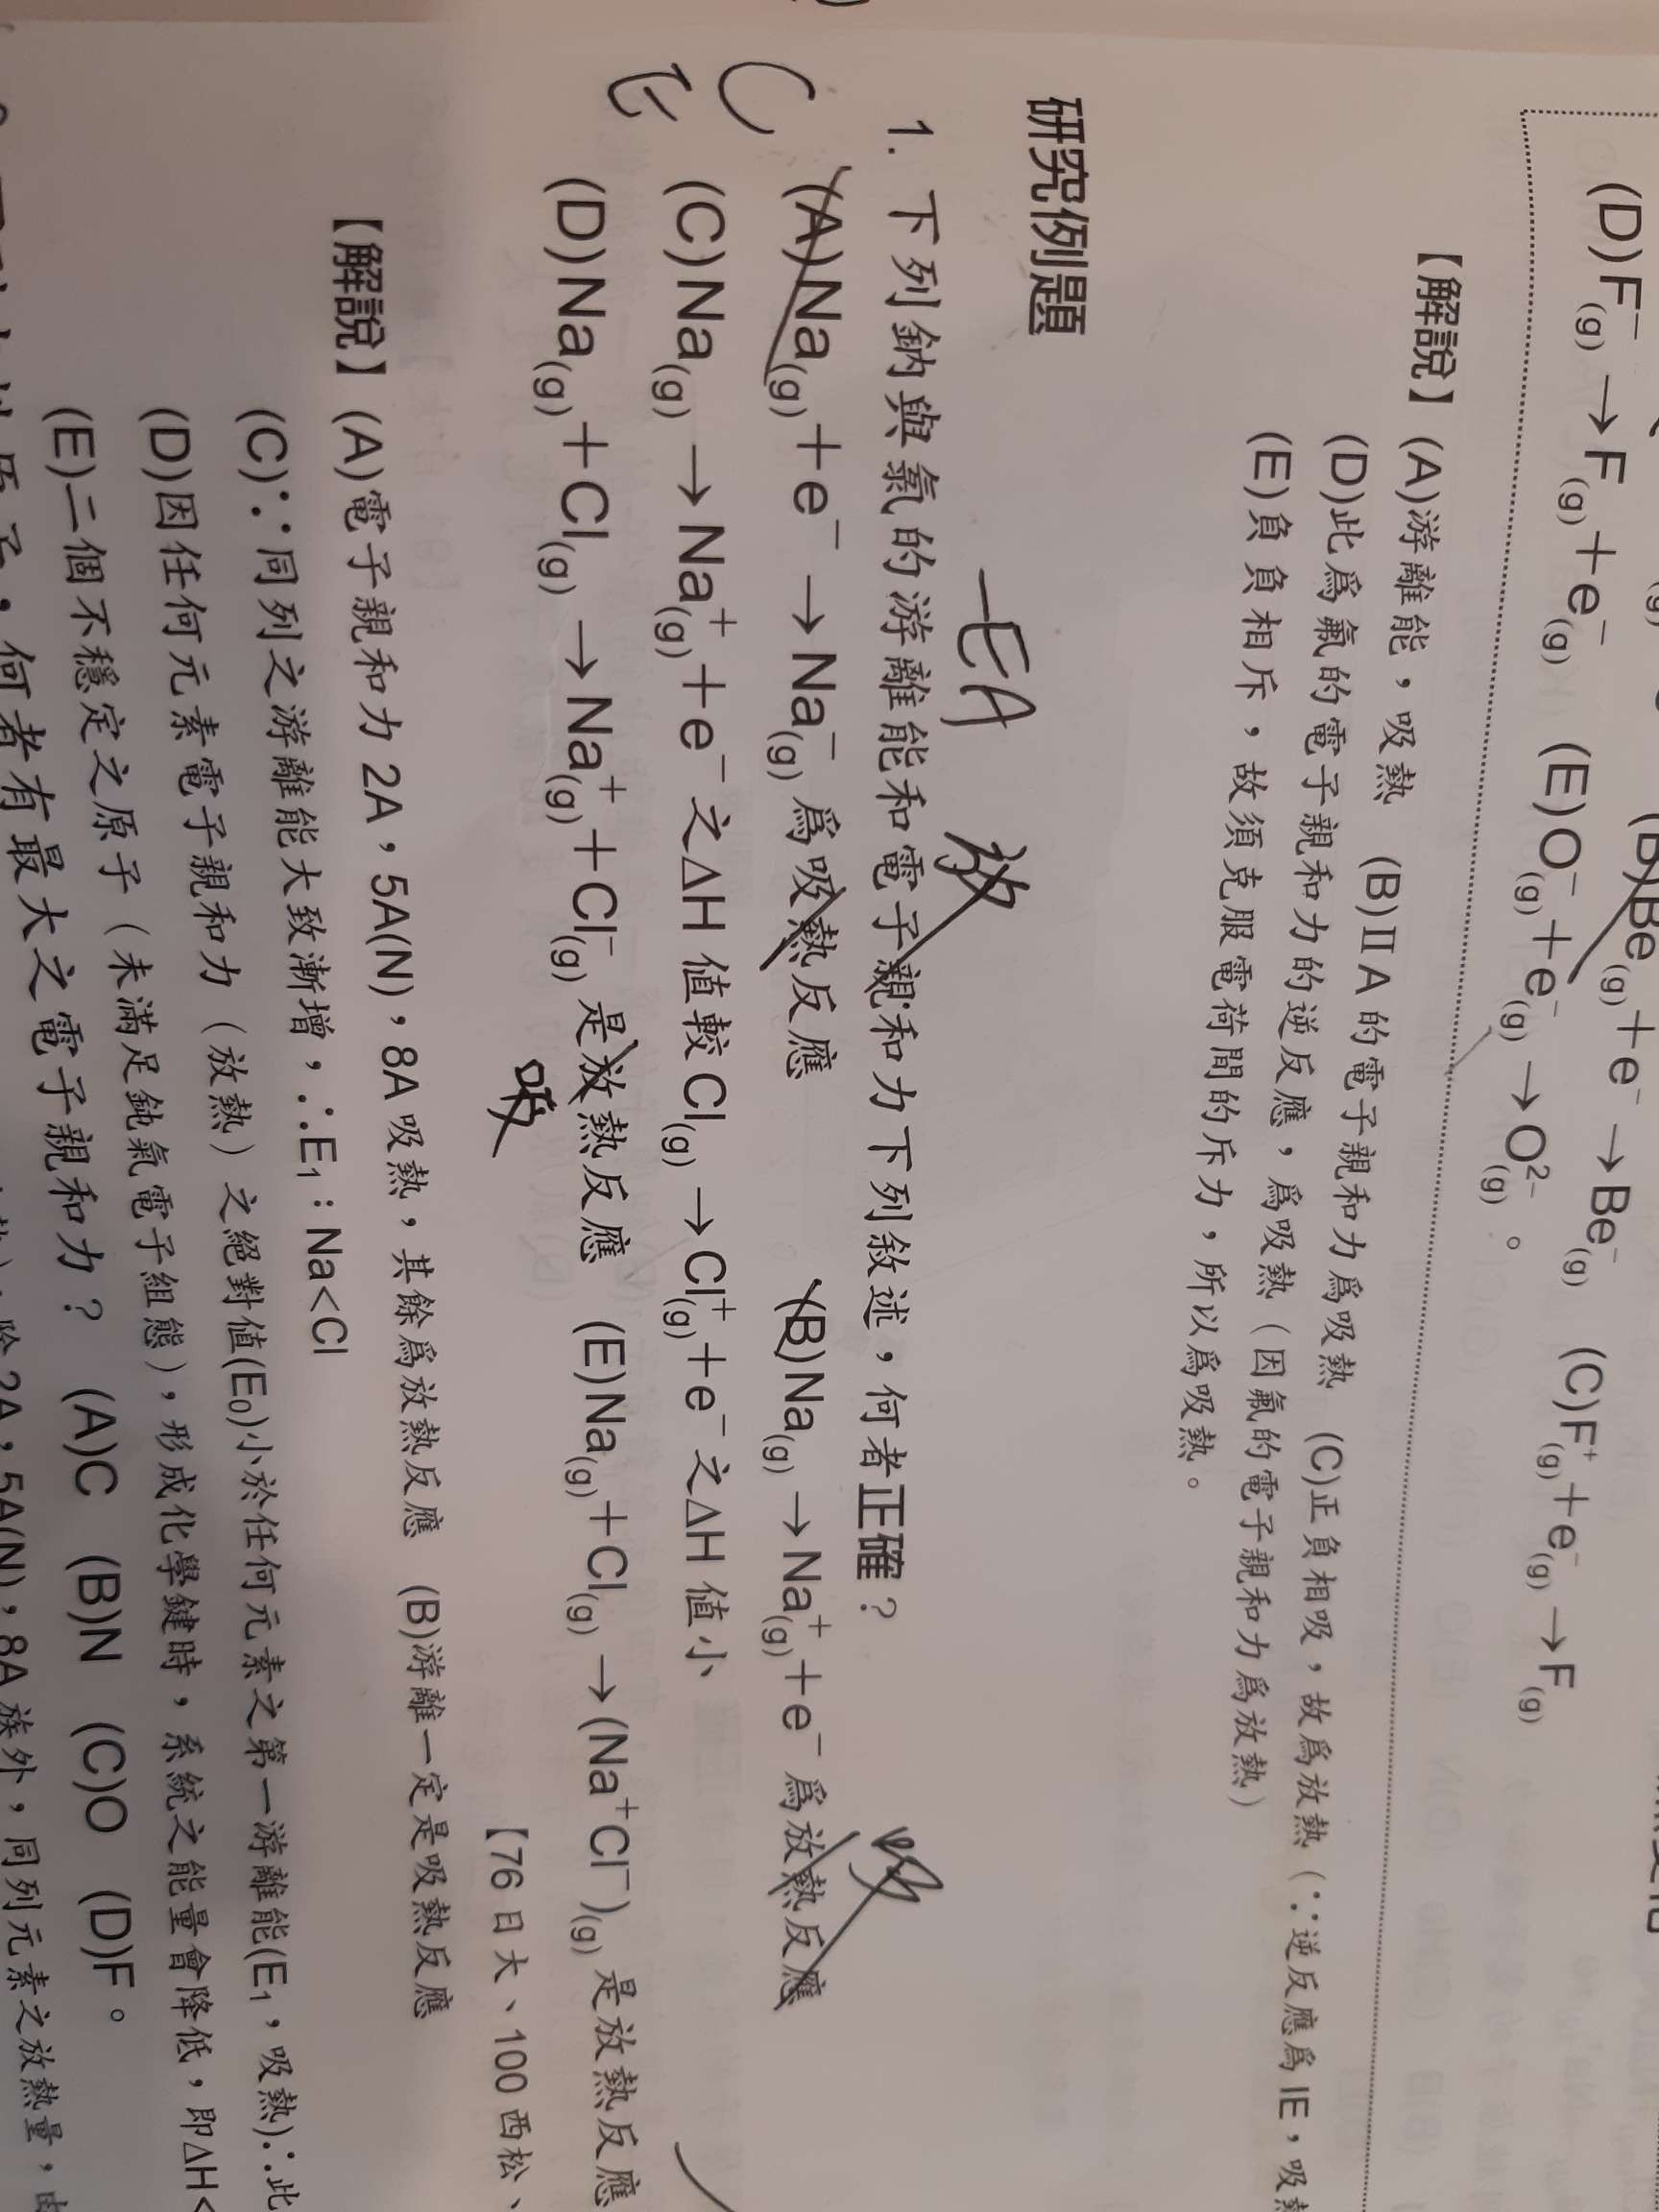 (B)Be(g)＋e⁻→Be⁻(g)　(C)F⁺(g)＋e⁻(g)→F(g)
(D)F⁻(g)→F(g)＋e⁻(g)　(E)O⁻(g)＋e⁻(g)→O²⁻(g)。
【解說】(A)游離能，吸熱　(B)ⅡA 的電子親和力爲吸熱　(C)正負相吸，故爲放熱（∵逆反應爲 IE，吸熱
(D)此爲氟的電子親和力的逆反應，爲吸熱（因氟的電子親和力爲放熱）
(E)負負相斥，故須克服電荷間的斥力，所以爲吸熱。
研究例題
-EA 放
1. 下列鈉與氯的游離能和電子親和力下列敘述，何者正確？
吸
(A)Na(g)＋e⁻→Na⁻(g) 爲吸熱反應　(B)Na(g)→Na⁺(g)＋e⁻ 爲放熱反應
C
(C)Na(g)→Na⁺(g)＋e⁻ 之ΔH 值較 Cl(g)→Cl⁺(g)＋e⁻ 之ΔH 值小
E
(D)Na(g)＋Cl(g)→Na⁺(g)＋Cl⁻(g) 是放熱反應　(E)Na(g)＋Cl(g)→(Na⁺Cl⁻)(g) 是放熱反應
吸
【76 日大、100 西松、
【解說】(A)電子親和力 2A，5A(N)，8A 吸熱，其餘爲放熱反應　(B)游離一定是吸熱反應
(C)∵同列之游離能大致漸增，∴E₁：Na<Cl
(D)因任何元素電子親和力（放熱）之絕對值(E₀)小於任何元素之第一游離能(E₁，吸熱)∴此
(E)二個不穩定之原子（未滿足鈍氣電子組態），形成化學鍵時，系統之能量會降低，即ΔH<
何者有最大之電子親和力？　(A)C　(B)N　(C)O　(D)F。
2A，5A(N)，8A 族外，同列元素之放熱量，由